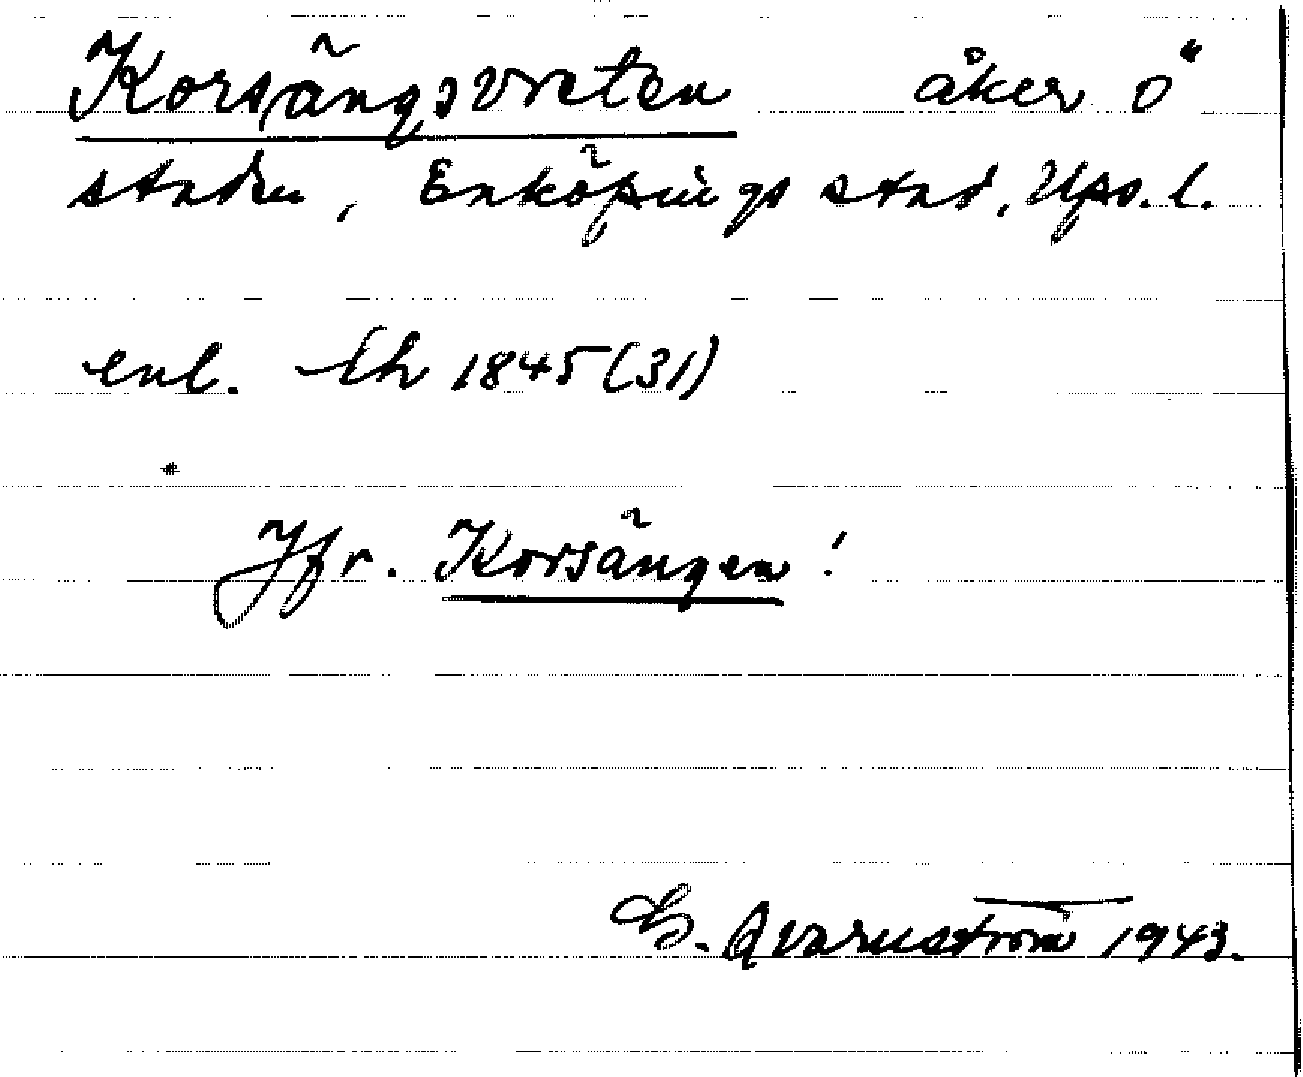 Korsängsvreten åker Ö"
staden, Enköpings stad, Ups. l.
enl. Lh 1845 (31)
Jfr. Korsängen!
G. Qvarnström 1943.